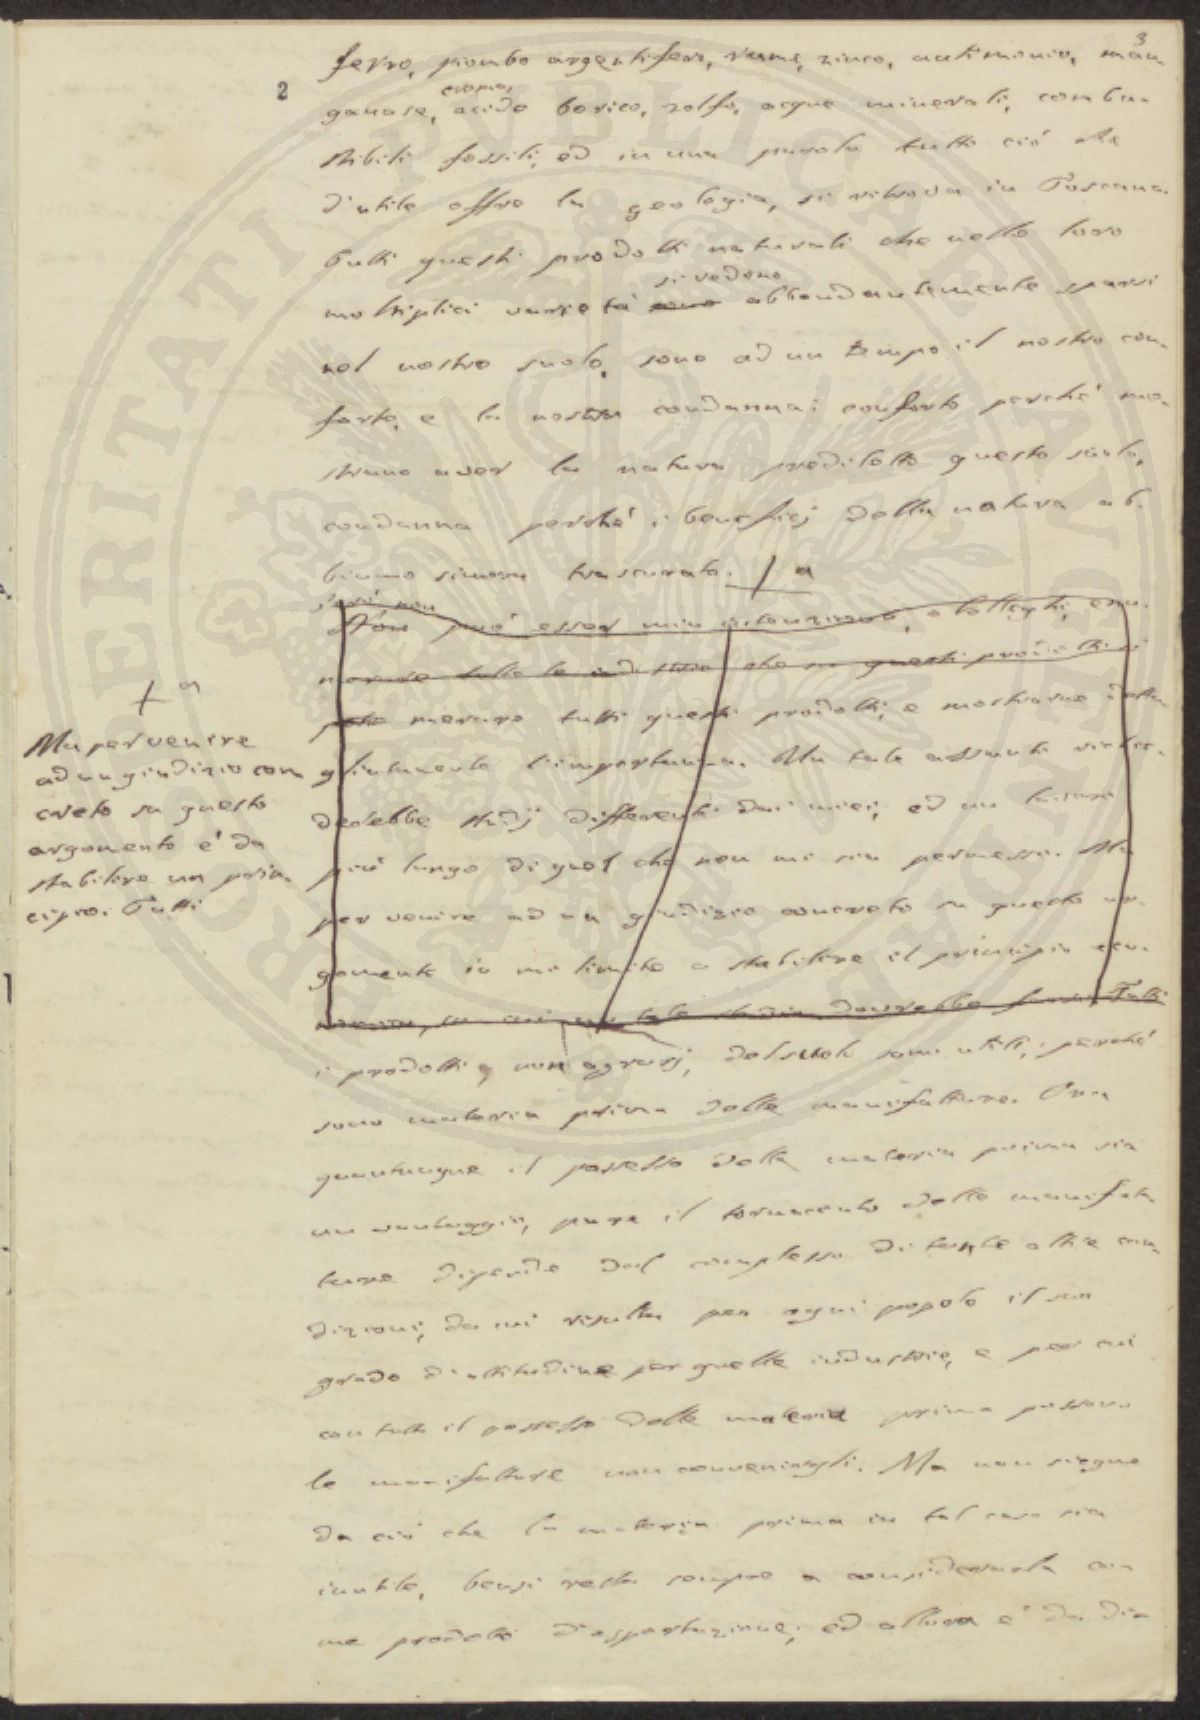 3
2
ferro, piombo argentifero, rame, zinco, antimonio, man-
cromo,
ganese, acido borico, zolfo, acque minerali, combu-
stibili fossili, ed in una parola tutto ciò che
d'utile offre la geologia, si ritrova in Toscana.
Tutti questi prodotti naturali che nelle loro
si vedono
moltiplici varietà sono abbondantemente sparsi
nel nostro suolo, sono ad un tempo il nostro con-
forto, e la nostra condanna; conforto perché mo-
strano aver la natura prediletto questo suolo,
condanna perché i beneficj della natura ab-
biamo sinora trascurato. a
Però non
Non può esser mia intenzione, o colleghi, enu-
merare tutte le industrie che su questi prodotti si
merare tutti questi prodotti, e mostrarne detta-
gliatamente l'importanza. Un tale assunto richie-
derebbe studj differenti dai miei, ed un lavoro
più lungo di quel che non mi sia permesso. Ma
per venire ad un giudizio concreto su questo ar-
gomento io mi limito a stabilire il principio
su cui un tale studio dovrebbe farsi. Tutti
i prodotti non agrarj, del suolo sono utili, perché
sono materia prima delle manifatture. Ora
quantunque il possesso della materia prima sia
un vantaggio, pure il tornaconto delle manifat-
ture dipende dal complesso di tante altre con-
dizioni, da cui risulta per ogni popolo il suo
grado d'attitudine per quelle industrie, e per cui
con tutto il possesso delle materie prime possono
le manifatture non convenirgli. Ma non segue
da ciò che la materia prima in tal caso sia
inutile, bensì resta sempre a considerarla co-
me prodotto d'esportazione; ed allora è da di-
a
Ma per venire
ad un giudizio con
creto su questo
argomento è da
stabilire un prin-
cipio. Tutti